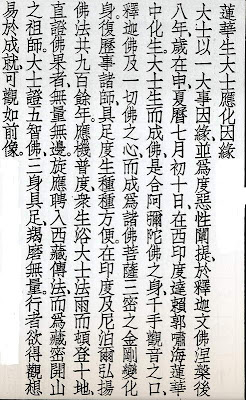 蓮華生大士應化因緣
大士以一大事因緣並為度惡性闡提於釋迦文佛涅槃後
八年歲在申夏曆七月初十日在西印度達賴郭嚼海蓮華
中化生大士生而成佛是合阿彌陀佛之身千手觀音之口
釋迦佛及一切佛之心而成為諸佛菩薩三密之金剛變化
身復歷事諸師具足度生種種方便在印度及尼泊爾弘揚
佛法共九百餘年應機普度眾生浴大士法雨而頓登十地
直證佛果者無量無邊旋應聘入西藏傳法而為藏密開山
之祖師大士證五智佛三身具足羯磨無量行者欲得觀想
易於成就可觀如前像